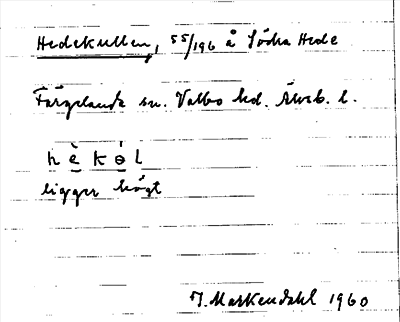 Hedekullen, 55/196 å Södra Hede
Färgelanda sn. Valbo hd. Älvsb. l.
hè̱kė̱l
ligger högt
J. Markendahl 1960